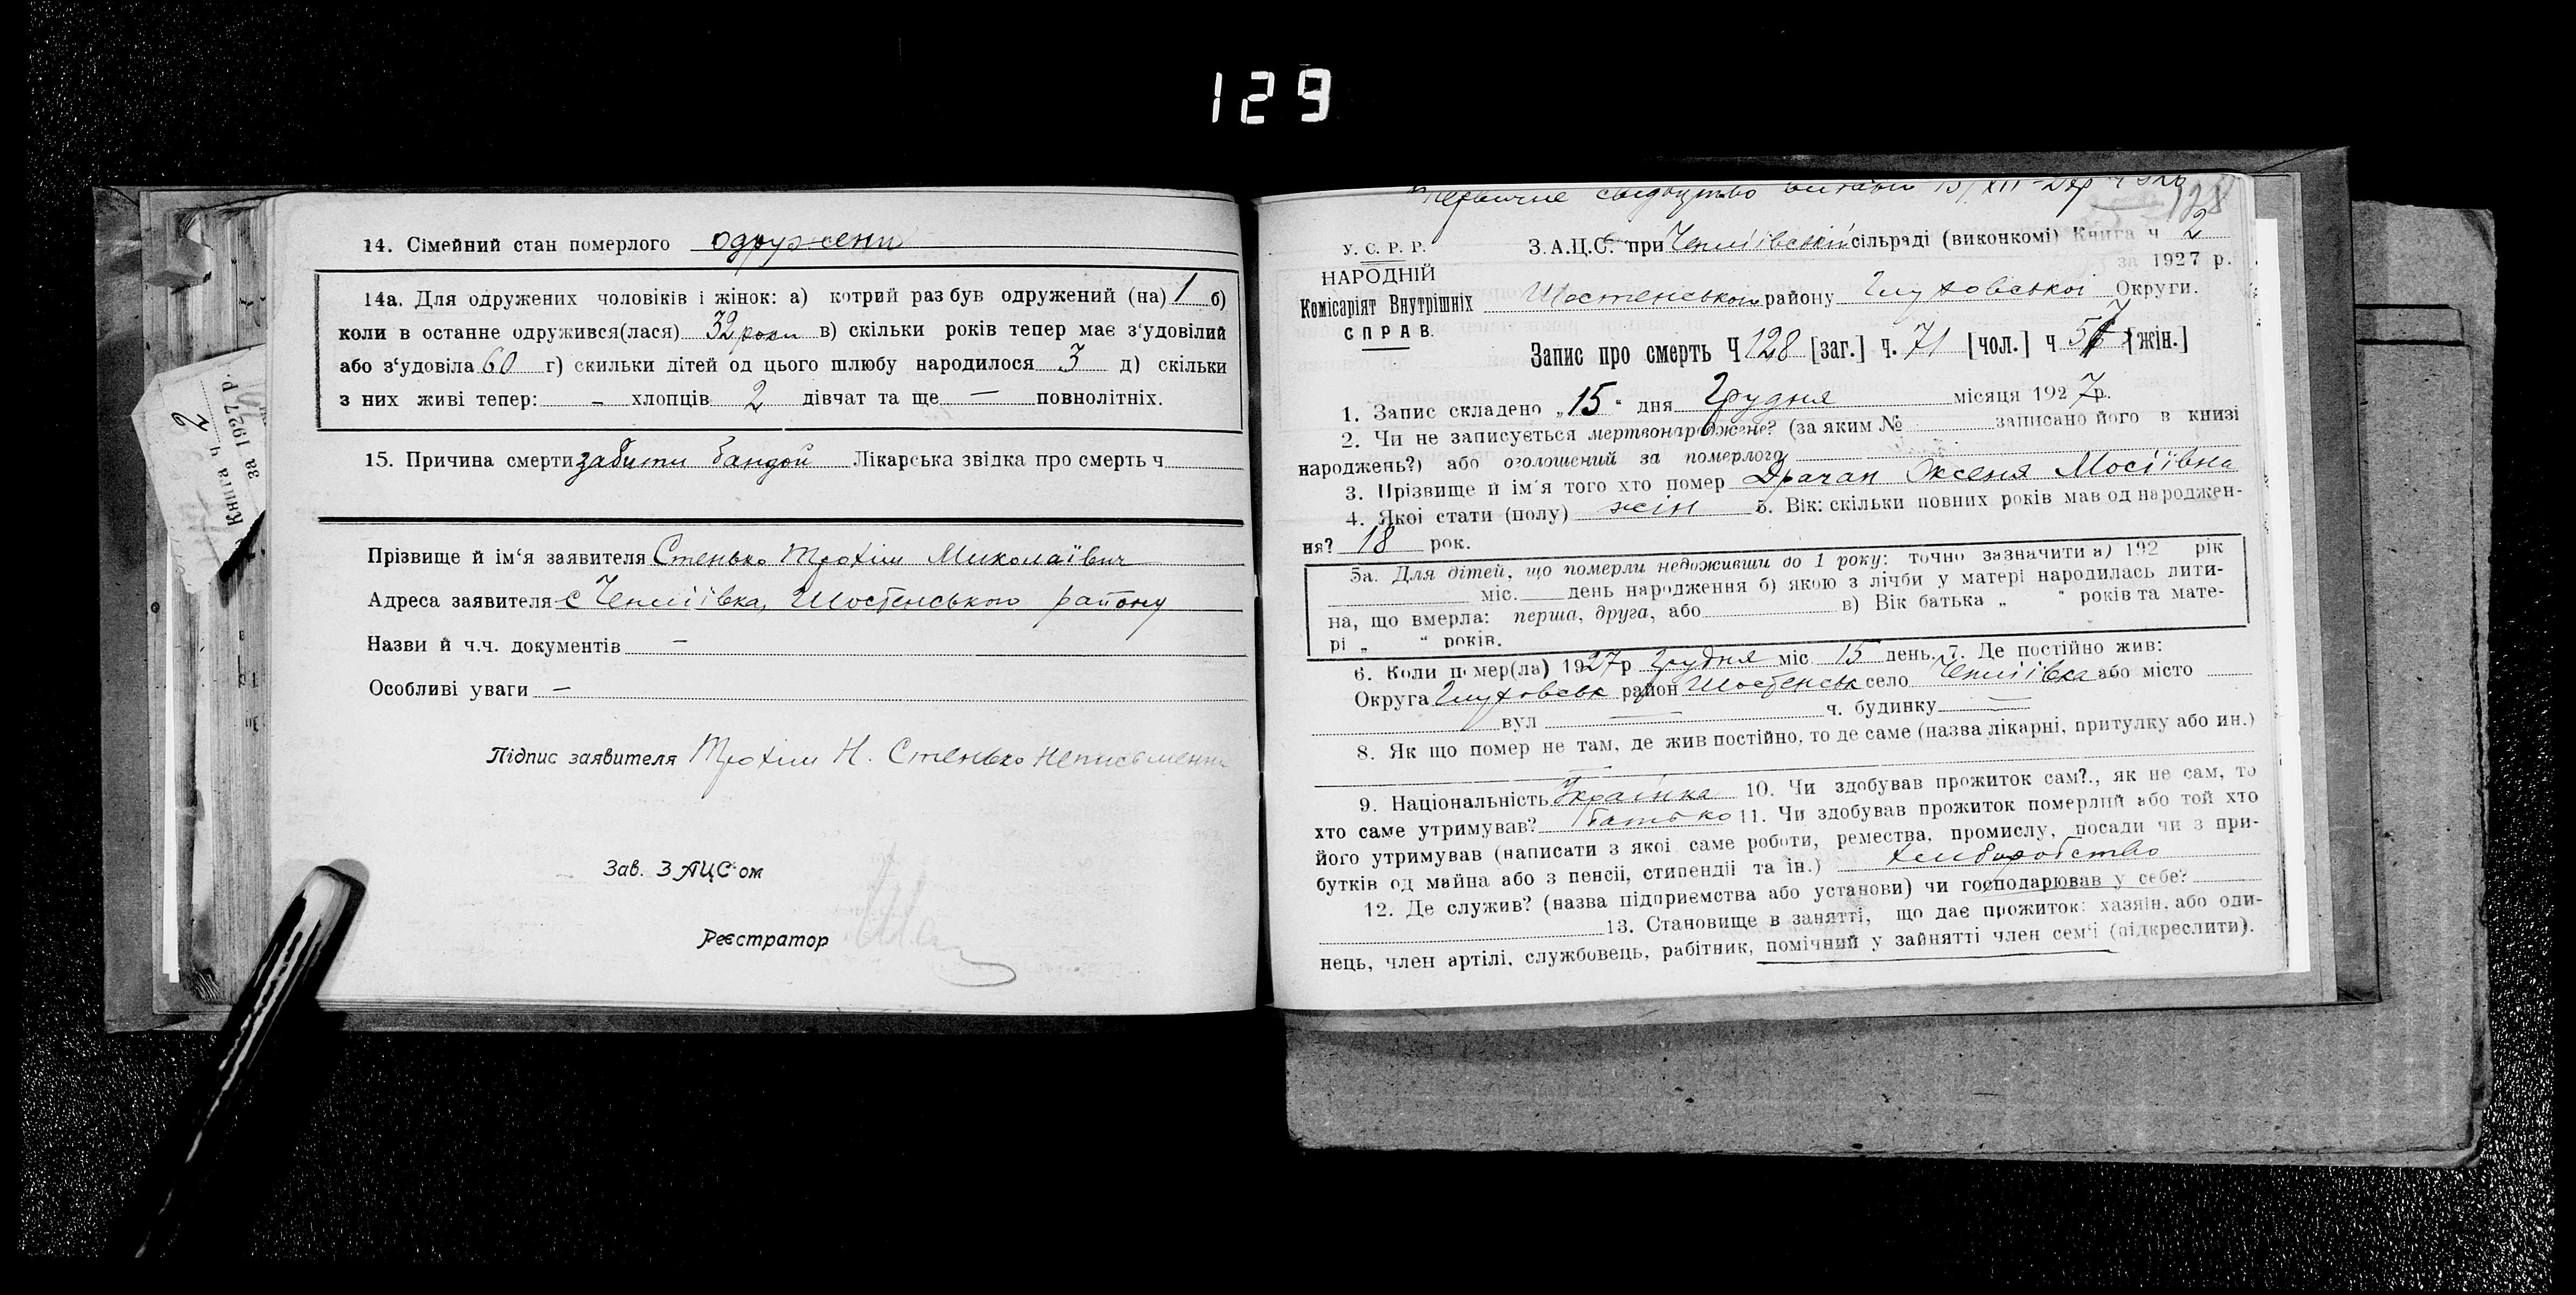 129
14. Сімейний стан померлого одружени
14а. Для одружених чоловіків і жінок: а) котрий раз був одружений (на) 1 б)
коли в останне одружився(лася) 32 роки в) скільки років тепер має з‘удовілий
або з‘удовіла 60 г) скильки дітей од цього шлюбу народилося 3 д) скільки
з них живі тепер: – хлопців 2 дівчат та ще — повнолітніх.
15. Причина смерти забити бандой Лікарська звідка про смерть ч
Прізвище й ім‘я заявителя Стенько Трохім Миколаївич
Адреса заявителя с Чепліївка, Шостенського району
Назви й ч.ч. документів —
Особливі уваги —
Підпис заявителя Трохім Н. Стенько неписьменни
Зав. ЗАЦС‘ом
Реєстратор
Книга ч 2
за 1927 р.
Первичне свидоцтво 15/XII
128
У. С. Р. Р.
НАРОДНІЙ
Комісаріят Внутрішніх
СПРАВ.
З.А.Ц.С. при Чепліївській сільраді (виконкомі) Книга ч 2
за 1927 р.
Шостенського району Глуховської Округи.
Запис про смерть Ч 128 [заг.] ч. 71 [чол.] ч 57 [жін.]
1. Запис складено „15“ дня Грудня місяця 1927р.
2. Чи не записується мертвонароджене? (за яким № записано його в книзі
народжень?) або оголошений за померлого
3. Прізвище й ім‘я того хто помер Драчан Оксеня Мосіївна
4. Якої стати (полу) жін 5. Вік: скільки повних років мав од народжен-
ня? 18 рок.
5а. Для дітей, що померли недоживши до 1 року: точно зазначити а) 192 рік
міс. день народження б) якою з лічби у матері народилась дити-
на, що вмерла: перша, друга, або в) Вік батька „ “ років та мате-
рі „ “ років.
6. Коли помер(ла) 1927р Грудня міс 15 день. 7. Де постійно жив:
Округа Глуховськ район Шостенськ село Чепліївка або місто
вул — ч. будинку —
8. Як що помер не там, де жив постійно, то де саме (назва лікарні, притулку або ин.)
9. Національність Українка 10. Чи здобував прожиток сам?., як не сам, то
хто саме утримував? батько 11. Чи здобував прожиток померлий або той хто
його утримував (написати з якої саме роботи, ремества, промислу, посади чи з при-
бутків од майна або з пенсії, стипендії та ін.) хлиборобство
12. Де служив? (назва підприємства або установи) чи господарював у себе?
13. Становище в занятті, що дає прожиток: хазяїн, або оди-
нець, член артілі, службовець, рабітник, помічний у зайнятті член сем‘ї (підкреслити).